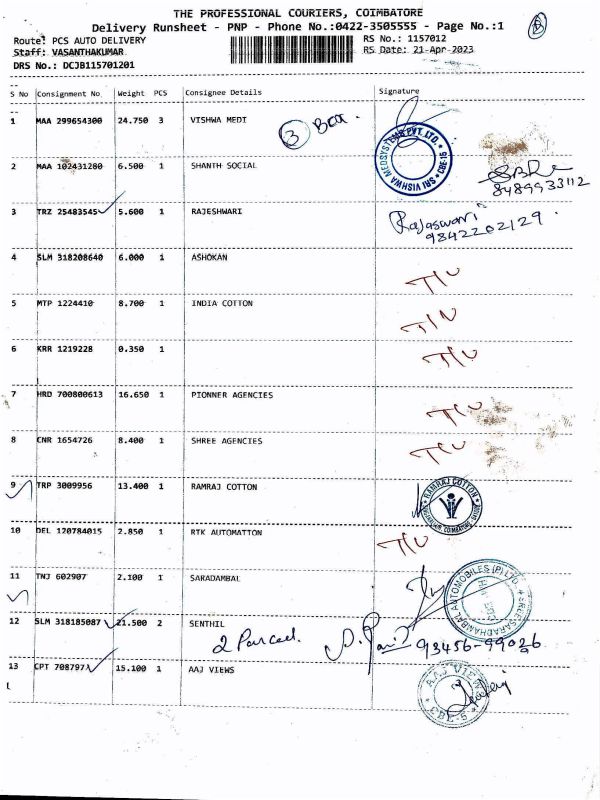 THE PROFESSIONAL COURIERS, COIMBATORE
Delivery Runsheet - PNP - Phone No.:0422-3505555 - Page No.:1
Route: PCS AUTO DELIVERY RS No.: 1157012
Staff: VASANTHAKUMAR RS Date: 21-Apr-2023
DRS No.: DCJB115701201
S No Consignment No Weight PCS Consignee Details Signature
1 MAA 299654300 24.750 3 VISHWA MEDI 3 Box
SRI VISHWA MEDSYSTEMS PVT. LTD. * CBE-15 *
2 MAA 102431280 6.500 1 SHANTH SOCIAL
8489933112
3 TRZ 25483545 5.600 1 RAJESHWARI Rajaswari
9842202129
4 SLM 318208640 6.000 1 ASHOKAN T/U
5 MTP 1224410 8.700 1 INDIA COTTON T/U
6 KRR 1219228 0.350 1 T/U
7 HRD 700800613 16.650 1 PIONNER AGENCIES T/U
8 CNR 1654726 8.400 1 SHREE AGENCIES T/U
9 TRP 3009956 13.400 1 RAMRAJ COTTON RAMRAJ COTTON
10 DEL 120784015 2.850 1 RTK AUTOMATTON T/U
11 TNJ 602907 2.100 1 SARADAMBAL
SREE SARADHAMBAL AUTOMOBILES (P) LTD.
12 SLM 318185087 21.500 2 SENTHIL
2 Parcel 93456-99026
13 CPT 708797 15.100 1 AAJ VIEWS AAJ VIEW CBE-6